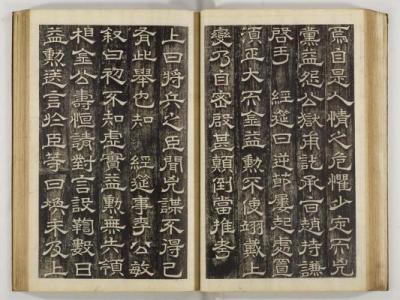 焉自是人情之危懼少定而兇
黨益怨公獄甫訖承旨趙持謙
啓于 經筵曰逆節屢起處置
須正大而金益勳不使翊戴上
變乃自密啓甚顚倒當推考
上曰將兵之臣聞兇謀不得已
有此擧也知 經筵事李公敏
叙曰初不知虛實益勳無失領
相金公壽恒請對言設鞫數日
益勳送言於臣等曰煥未及上